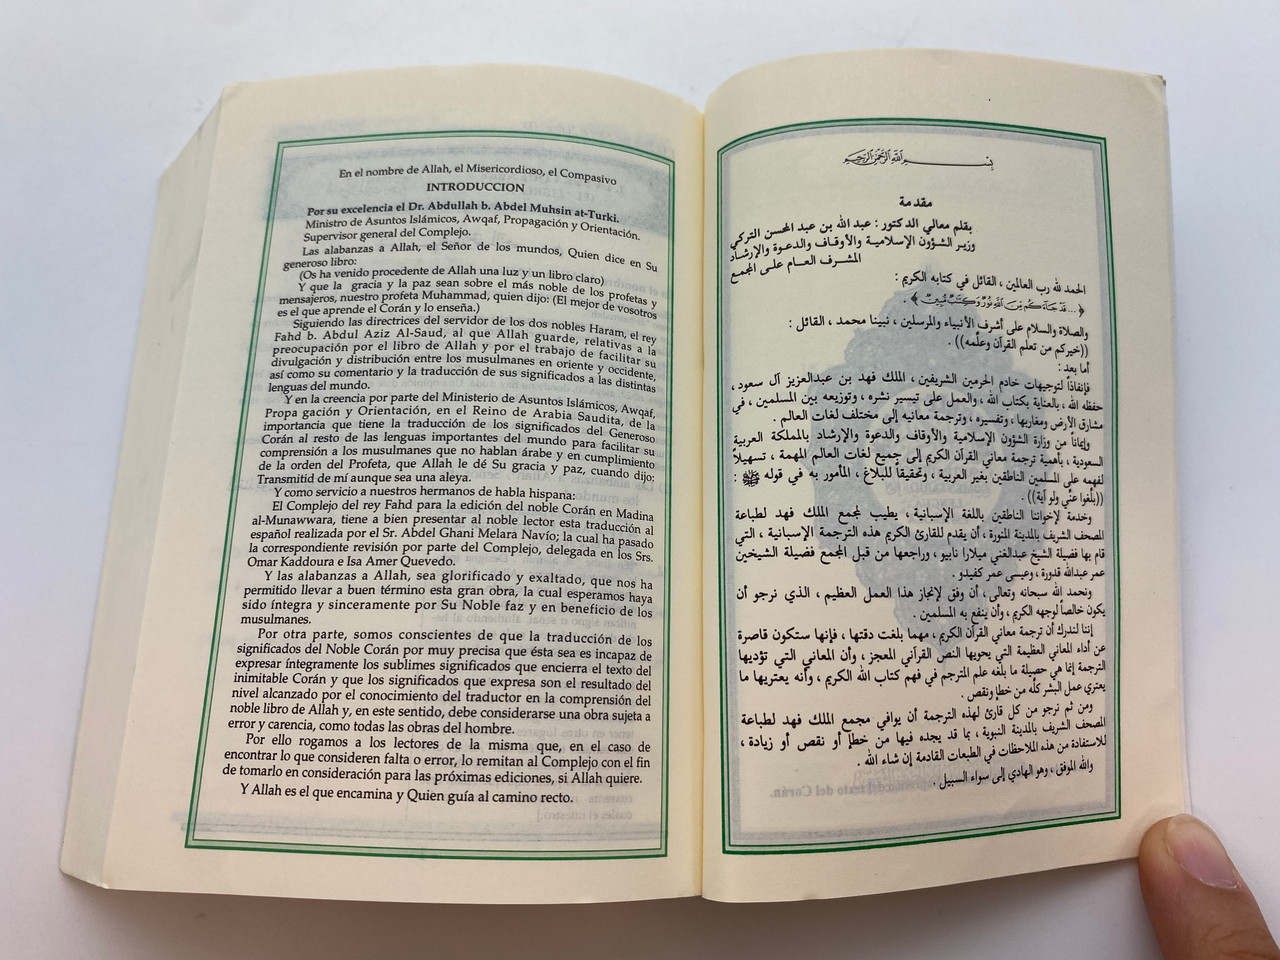 En el nombre de Allah, el Misericordioso, el Compasivo
INTRODUCCION
Por su excelencia el Dr. Abdullah b. Abdel Muhsin at-Turki.
Ministro de Asuntos Islámicos, Awqaf, Propagación y Orientación.
Supervisor general del Complejo.
Las alabanzas a Allah, el Señor de los mundos, Quien dice en Su
generoso libro:
(Os ha venido procedente de Allah una luz y un libro claro)
Y que la gracia y la paz sean sobre el más noble de los profetas y
mensajeros, nuestro profeta Muhammad, quien dijo: (El mejor de vosotros
es el que aprende el Corán y lo enseña.)
Siguiendo las directrices del servidor de los dos nobles Haram, el rey
Fahd b. Abdul Aziz Al-Saud, al que Allah guarde, relativas a la
preocupación por el libro de Allah y por el trabajo de facilitar su
divulgación y distribución entre los musulmanes en oriente y occidente,
así como su comentario y la traducción de sus significados a las distintas
lenguas del mundo.
Y en la creencia por parte del Ministerio de Asuntos Islámicos, Awqaf,
Propa gación y Orientación, en el Reino de Arabia Saudita, de la
importancia que tiene la traducción de los significados del Generoso
Corán al resto de las lenguas importantes del mundo para facilitar su
comprensión a los musulmanes que no hablan árabe y en cumplimiento
de la orden del Profeta, que Allah le dé Su gracia y paz, cuando dijo:
Transmitid de mí aunque sea una aleya.
Y como servicio a nuestros hermanos de habla hispana:
El Complejo del rey Fahd para la edición del noble Corán en Madina
al-Munawwara, tiene a bien presentar al noble lector esta traducción al
español realizada por el Sr. Abdel Ghani Melara Navío; la cual ha pasado
la correspondiente revisión por parte del Complejo, delegada en los Srs.
Omar Kaddoura e Isa Amer Quevedo.
Y las alabanzas a Allah, sea glorificado y exaltado, que nos ha
permitido llevar a buen término esta gran obra, la cual esperamos haya
sido íntegra y sinceramente por Su Noble faz y en beneficio de los
musulmanes.
Por otra parte, somos conscientes de que la traducción de los
significados del Noble Corán por muy precisa que ésta sea es incapaz de
expresar íntegramente los sublimes significados que encierra el texto del
inimitable Corán y que los significados que expresa son el resultado del
nivel alcanzado por el conocimiento del traductor en la comprensión del
noble libro de Allah y, en este sentido, debe considerarse una obra sujeta a
error y carencia, como todas las obras del hombre.
Por ello rogamos a los lectores de la misma que, en el caso de
encontrar lo que consideren falta o error, lo remitan al Complejo con el fin
de tomarlo en consideración para las próximas ediciones, si Allah quiere.
Y Allah es el que encamina y Quien guía al camino recto.
بسم الله الرحمن الرحيم
مقدمة
بقلم معالي الدكتور : عبد الله بن عبد المحسن التركي
وزير الشؤون الإسلامية والأوقاف والدعوة والإرشاد
المشرف العام على المجمع
الحمد لله رب العالمين ، القائل في كتابه الكريم :
﴿ ...قَدْ جَاءَكُم مِّنَ اللَّهِ نُورٌ وَكِتَابٌ مُّبِينٌ ﴾ .
والصلاة والسلام على أشرف الأنبياء والمرسلين ، نبينا محمد ، القائل :
((خيركم من تعلم القرآن وعلَّمه)) .
أما بعد :
فإنفاذاً لتوجيهات خادم الحرمين الشريفين ، الملك فهد بن عبدالعزيز آل سعود ،
حفظه الله ، بالعناية بكتاب الله ، والعمل على تيسير نشره ، وتوزيعه بين المسلمين ، في
مشارق الأرض ومغاربها ، وتفسيره ، وترجمة معانيه إلى مختلف لغات العالم .
وإيماناً من وزارة الشؤون الإسلامية والأوقاف والدعوة والإرشاد بالمملكة العربية
السعودية ، بأهمية ترجمة معاني القرآن الكريم إلى جميع لغات العالم المهمة ، تسهيلاً
لفهمه على المسلمين الناطقين بغير العربية ، وتحقيقاً للبلاغ ، المأمور به في قوله ﷺ :
((بلِّغوا عنِّي ولو آية)) .
وخدمة لإخواننا الناطقين باللغة الإسبانية ، يطيب لمجمع الملك فهد لطباعة
المصحف الشريف بالمدينة المنورة ، أن يقدم للقارئ الكريم هذه الترجمة الإسبانية ، التي
قام بها فضيلة الشيخ عبدالغني ميلارا نابيو ، وراجعها من قبل المجمع فضيلة الشيخين
عمر عبدالله قدورة ، وعيسى عمر كفيدو .
ونحمد الله سبحانه وتعالى ، أن وفق لإنجاز هذا العمل العظيم ، الذي نرجو أن
يكون خالصاً لوجهه الكريم ، وأن ينفع به المسلمين .
إننا لندرك أن ترجمة معاني القرآن الكريم ، مهما بلغت دقتها ، فإنها ستكون قاصرة
عن أداء المعاني العظيمة التي يحويها النص القرآني المعجز ، وأن المعاني التي تؤديها
الترجمة إنما هي حصيلة ما بلغه علم المترجم في فهم كتاب الله الكريم ، وأنه يعتريها ما
يعتري عمل البشر كلّه من خطإ ونقص .
ومن ثم نرجو من كل قارئ لهذه الترجمة أن يوافي مجمع الملك فهد لطباعة
المصحف الشريف بالمدينة النبوية ، بما قد يجده فيها من خطإ أو نقص أو زيادة ،
للاستفادة من هذه الملاحظات في الطبعات القادمة إن شاء الله .
والله الموفق ، وهو الهادي إلى سواء السبيل .